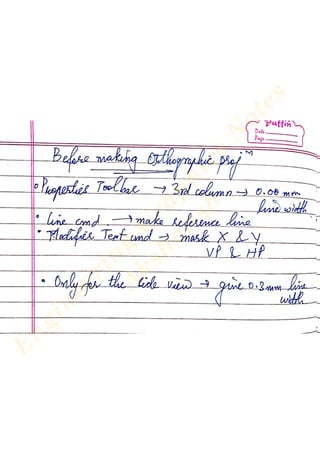 Puffin
Date
Page
Before making Orthographic projⁿ
• Properties Toolbar → 3rd column → 0.00 mm
line width
• Line cmd → make reference line
• Modifier Text cmd → mark X & Y
VP & HP
• Only for the side view → give 0.3mm line
width